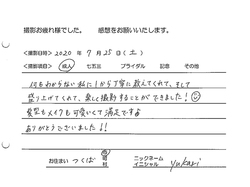 撮影お疲れ様でした。 感想をお願いいたします。
撮影日時 2020年 7月 25日(土)
撮影項目 成人 七五三 ブライダル 記念 その他
何もわからない私に1から丁寧に教えてくれて、そして
盛り上げてくれて、楽しく撮影することができました!
髪型もメイクも可愛いくて満足です
ありがとうございました!
お住まい つくば 市 村
ニックネーム
イニシャル yukari